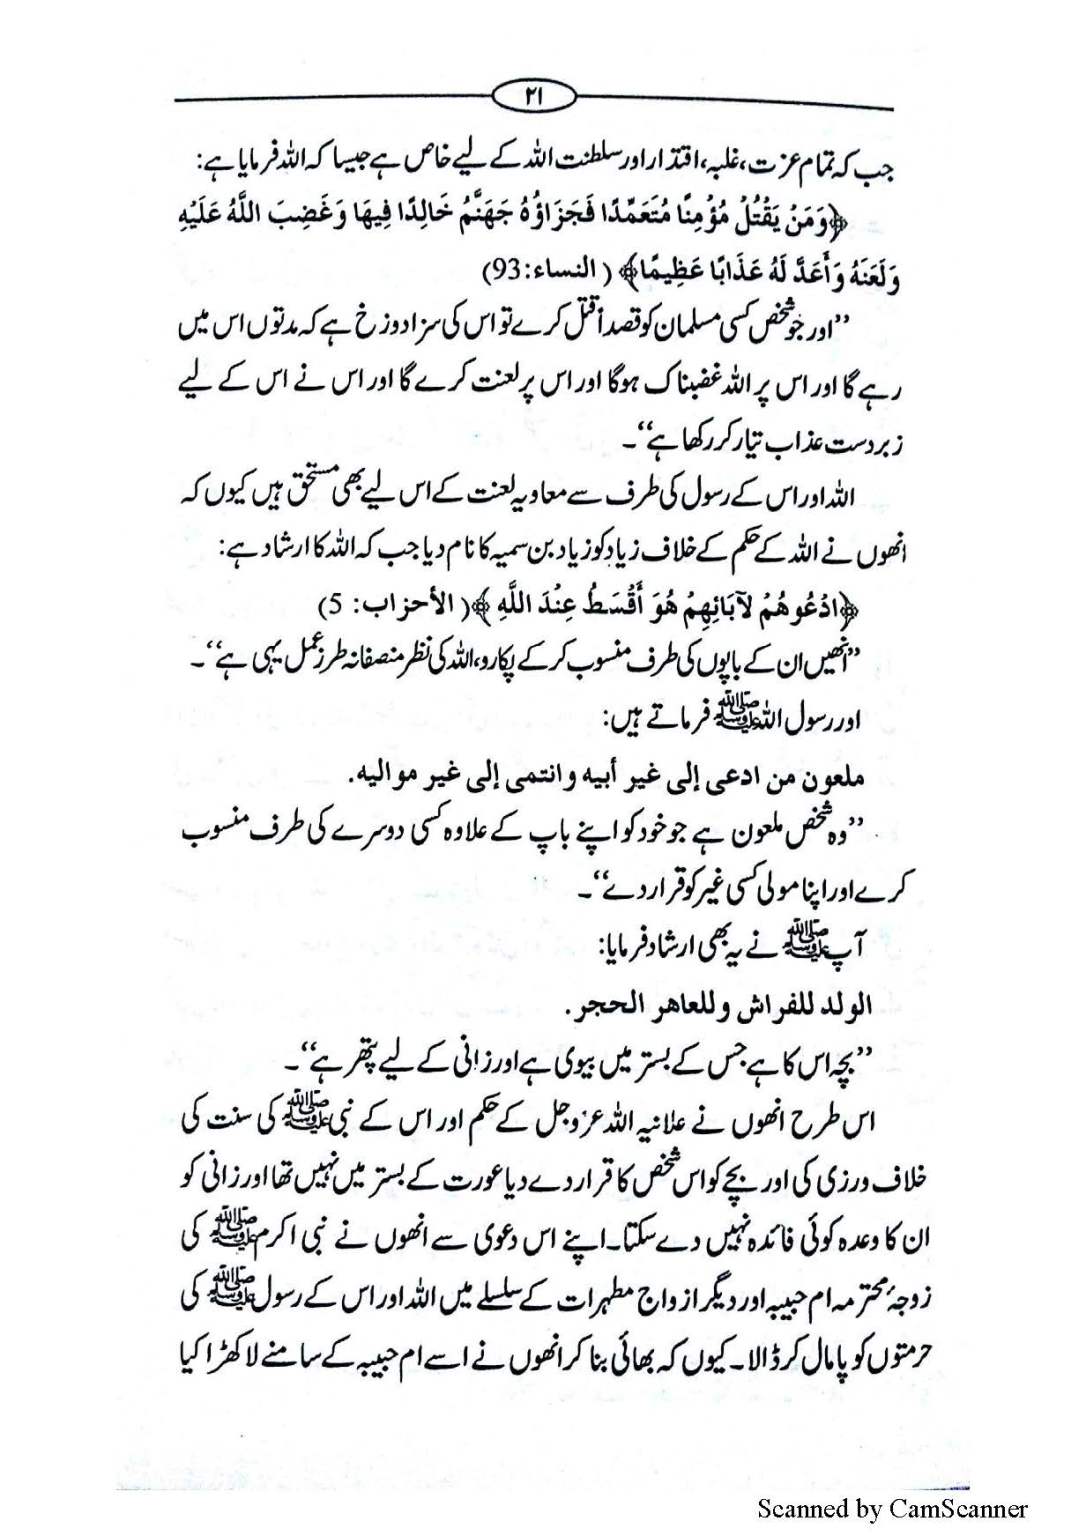 ۲۱
جب کہ تمام عزت، غلبہ، اقتدار اور سلطنت اللہ کے لیے خاص ہے جیسا کہ اللہ فرمایا ہے:
﴿وَمَنْ يَقْتُلْ مُؤْمِنًا مُتَعَمِّدًا فَجَزَاؤُهُ جَهَنَّمُ خَالِدًا فِيهَا وَغَضِبَ اللَّهُ عَلَيْهِ
وَلَعَنَهُ وَأَعَدَّ لَهُ عَذَابًا عَظِيمًا﴾ (النساء:93)
”اور جو شخص کسی مسلمان کو قصداً قتل کرے تو اس کی سزا دوزخ ہے کہ مدتوں اس میں
رہے گا اور اس پر اللہ غضبناک ہوگا اور اس پر لعنت کرے گا اور اس نے اس کے لیے
زبردست عذاب تیار کر رکھا ہے“۔
اللہ اور اس کے رسول کی طرف سے معاویہ لعنت کے اس لیے بھی مستحق ہیں کیوں کہ
انھوں نے اللہ کے حکم کے خلاف زیاد کو زیاد بن سمیہ کا نام دیا جب کہ اللہ کا ارشاد ہے:
﴿ادْعُوهُمْ لآبَائِهِمْ هُوَ أَقْسَطُ عِنْدَ اللَّهِ﴾ (الأحزاب: 5)
”انھیں ان کے باپوں کی طرف منسوب کر کے پکارو، اللہ کی نظر منصفانہ طرز عمل یہی ہے“۔
اور رسول اللہ ﷺ فرماتے ہیں:
ملعون من ادعى إلى غير أبيه وانتمى إلى غير مواليه.
”وہ شخص ملعون ہے جو خود کو اپنے باپ کے علاوہ کسی دوسرے کی طرف منسوب
کرے اور اپنا مولی کسی غیر کو قرار دے“۔
آپ ﷺ نے یہ بھی ارشاد فرمایا:
الولد للفراش وللعاهر الحجر.
”بچہ اس کا ہے جس کے بستر میں بیوی ہے اور زانی کے لیے پتھر ہے“۔
اس طرح انھوں نے علانیہ اللہ عزوجل کے حکم اور اس کے نبی ﷺ کی سنت کی
خلاف ورزی کی اور بچے کو اس شخص کا قرار دے دیا عورت کے بستر میں نہیں تھا اور زانی کو
ان کا وعدہ کوئی فائدہ نہیں دے سکتا۔ اپنے اس دعوی سے انھوں نے نبی اکرم ﷺ کی
زوجۂ محترمہ ام حبیبہ اور دیگر ازواج مطہرات کے سلسلے میں اللہ اور اس کے رسول ﷺ کی
حرمتوں کو پامال کر ڈالا۔ کیوں کہ بھائی بنا کر انھوں نے اسے ام حبیبہ کے سامنے لا کھڑا کیا
Scanned by CamScanner